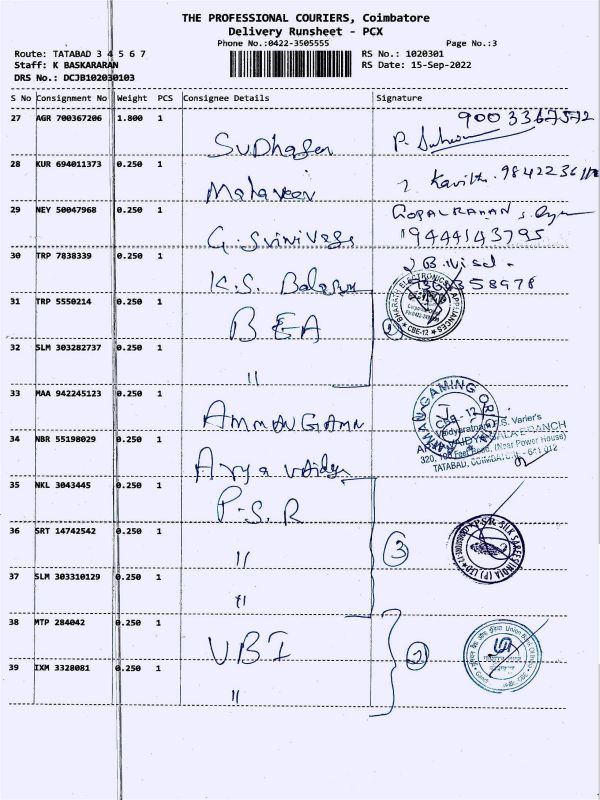 THE PROFESSIONAL COURIERS, Coimbatore
Delivery Runsheet - PCX
Phone No.:0422-3505555 Page No.:3
Route: TATABAD 3 4 5 6 7 RS No.: 1020301
Staff: K BASKARARAN RS Date: 15-Sep-2022
DRS No.: DCJB102030103
S No Consignment No Weight PCS Consignee Details Signature
27 AGR 700367206 1.800 1 9003367572
Sudhasen
28 KUR 694011373 0.250 1 Kavith. 984223611
Malaveen
29 NEY 50047968 0.250 1 GOPALRAMAN
G. Srinivasa 9444143795
30 TRP 7838339 0.250 1
K.S. Balaram
31 TRP 5550214 0.250 1 BHARATH ELECTRONICS & APPLIANCES * CBE-12 *
BEA
32 SLM 303282737 0.250 1
"
33 MAA 942245123 0.250 1
AMMAN GAMN
34 NBR 55198029 0.250 1 Vaidyaratnam P.S. Varier's
ARYA VAIDYA SALA BRANCH
320, 100 Feet Road, (Near Power House)
TATABAD, COIMBATORE - 641 012
Arya vaidya
35 NKL 3043445 0.250 1
P.S.R
36 SRT 14742542 0.250 1 P.S.R. SILK SAREES INDIA (P) LTD
" 3
37 SLM 303310129 0.250 1
"
38 MTP 284042 0.250 1 Union Bank Of India
UBI 2
39 IXM 3328081 0.250 1
"